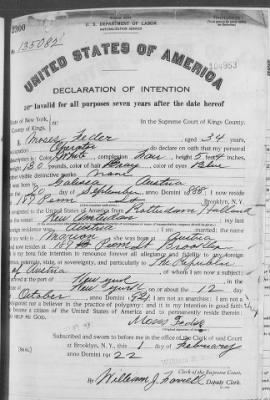 2300
U. S. DEPARTMENT OF LABOR
NATURALIZATION SERVICE
No. 135082
UNITED STATES OF AMERICA
DECLARATION OF INTENTION
Invalid for all purposes seven years after the date hereof
State of New York,
County of Kings,
In the Supreme Court of Kings County.
Moses Feder, aged 34 years,
occupation Operator, do declare on oath that my personal
description is: Color White, complexion Fair, height 5 feet 4 inches,
weight 130 pounds, color of hair, color of eyes Blue
other visible distinctive marks None
Galicia Austria
on the 20 day of September, anno Domini 1888; I now reside
at 189 Penn St Brooklyn, N.Y.
I emigrated to the United States of America from Rotterdam Holland
on the vessel New Amsterdam; my last
foreign residence was Austria
wife is Marion; she was born in Austria
and now resides at 189 Penn St Brooklyn
It is my bona fide intention to renounce forever all allegiance and fidelity to any foreign
prince, potentate, state, or sovereignty, and particularly to The Republic
of Austria, of whom I am now a subject;
I arrived at the port of New York
State of New York, on or about the 12 day
of October, anno Domini; I am not an anarchist; I am not a
polygamist nor a believer in the practice of polygamy; and it is my intention in good faith
to become a citizen of the United States of America and to permanently reside therein:
SO HELP ME GOD.
Moses Feder
Subscribed and sworn to before me in the office of the Clerk of said Court
at Brooklyn, N. Y., this 1 day of February
anno Domini 1922
[SEAL]
Clerk of the Supreme Court.
By William J., Deputy Clerk.